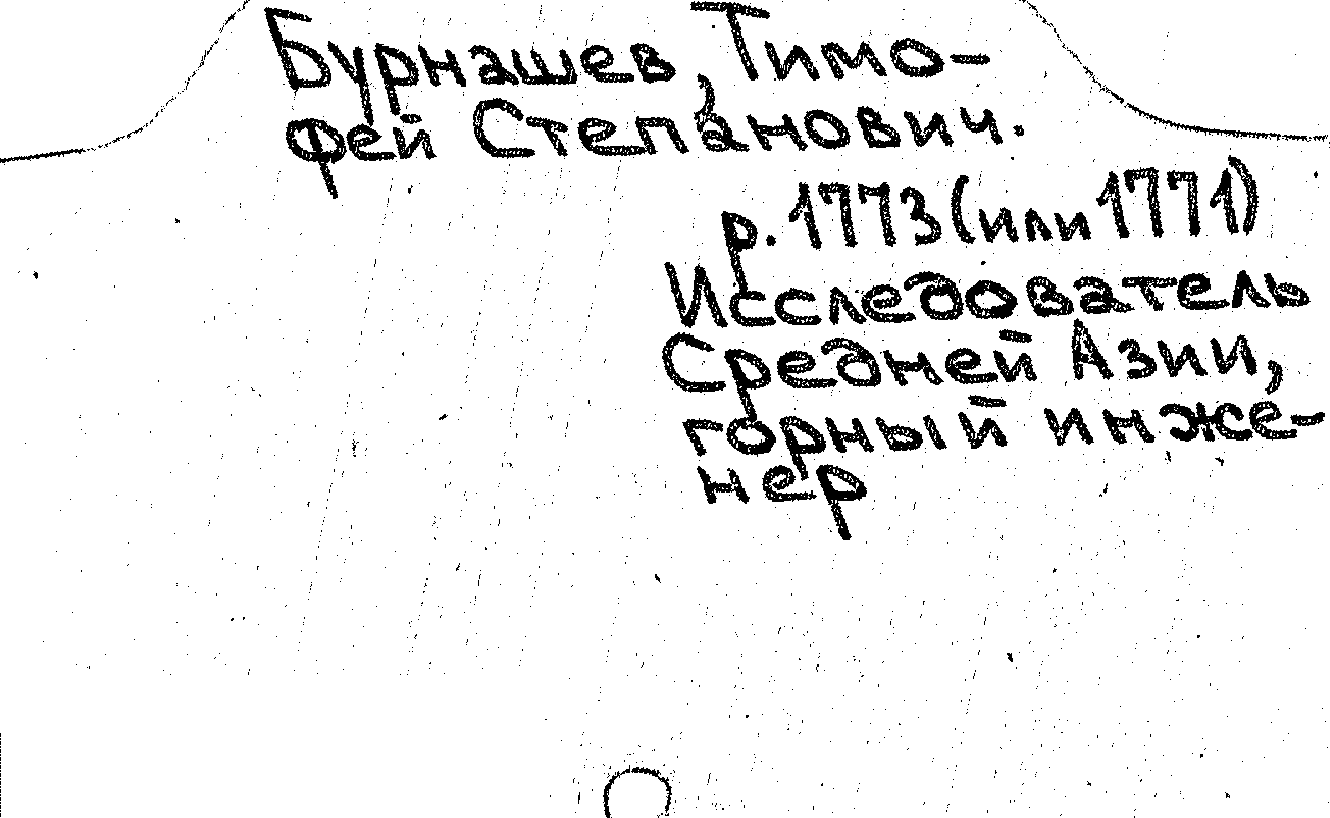 Бурнашев, Тимо-
фей Степанович.
р. 1773 (или 1771)
Исследователь
Средней Азии,
горный инже-
нер